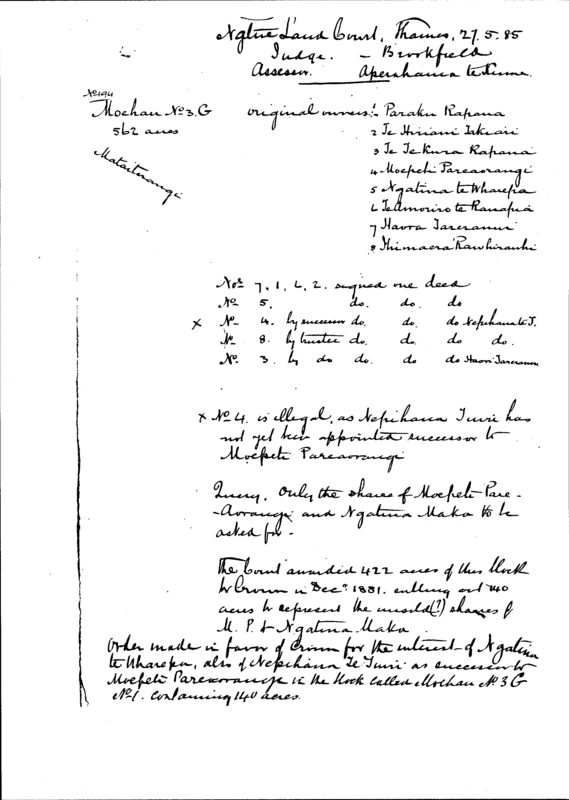 Native Land Court, Thames, 27.5.85
Judge. - Brookfield
Assessor.
No 194
Moehau No 3. G original owners:- Paraku Rapana
562 acres 2 Te Hiriani Takiari
3 Te Te Kura Rapana
Mataiterangi
4 Moepeti Pareaorangi
5 Ngatina te Wharepa
6 Te Amoriro te
7 Haora Tareranui
8 Ihimaera
Nos 7, 1, 6, 2. signed one deed
No 5. do. do. do
x No 4. by successor do. do. do Nepihana te T.
No 8. by trustee do. do. do.
No 3. by do do. do Haora Tareranui
x No 4. is illegal, as Nepihana Tuirir has
not yet been appointed successor to
Moepeti Pareaorangi
Query. Only the shares of Moepeti Pare-
-Aorangi and Ngatina Maka to be
asked for.
The Court awarded 422 acres of this block
to Crown in Decr 1881. cutting out 140
acres to represent the unsold (?) shares of
M. P. & Ngatina Maka
Order made in favor of Crown for the interest of Ngatina
te Wharepa, also of Nepihana Te as successor to
Moepeti Pareaorangi in the block called Moehau No 3 G
No 1. containing 140 acres.